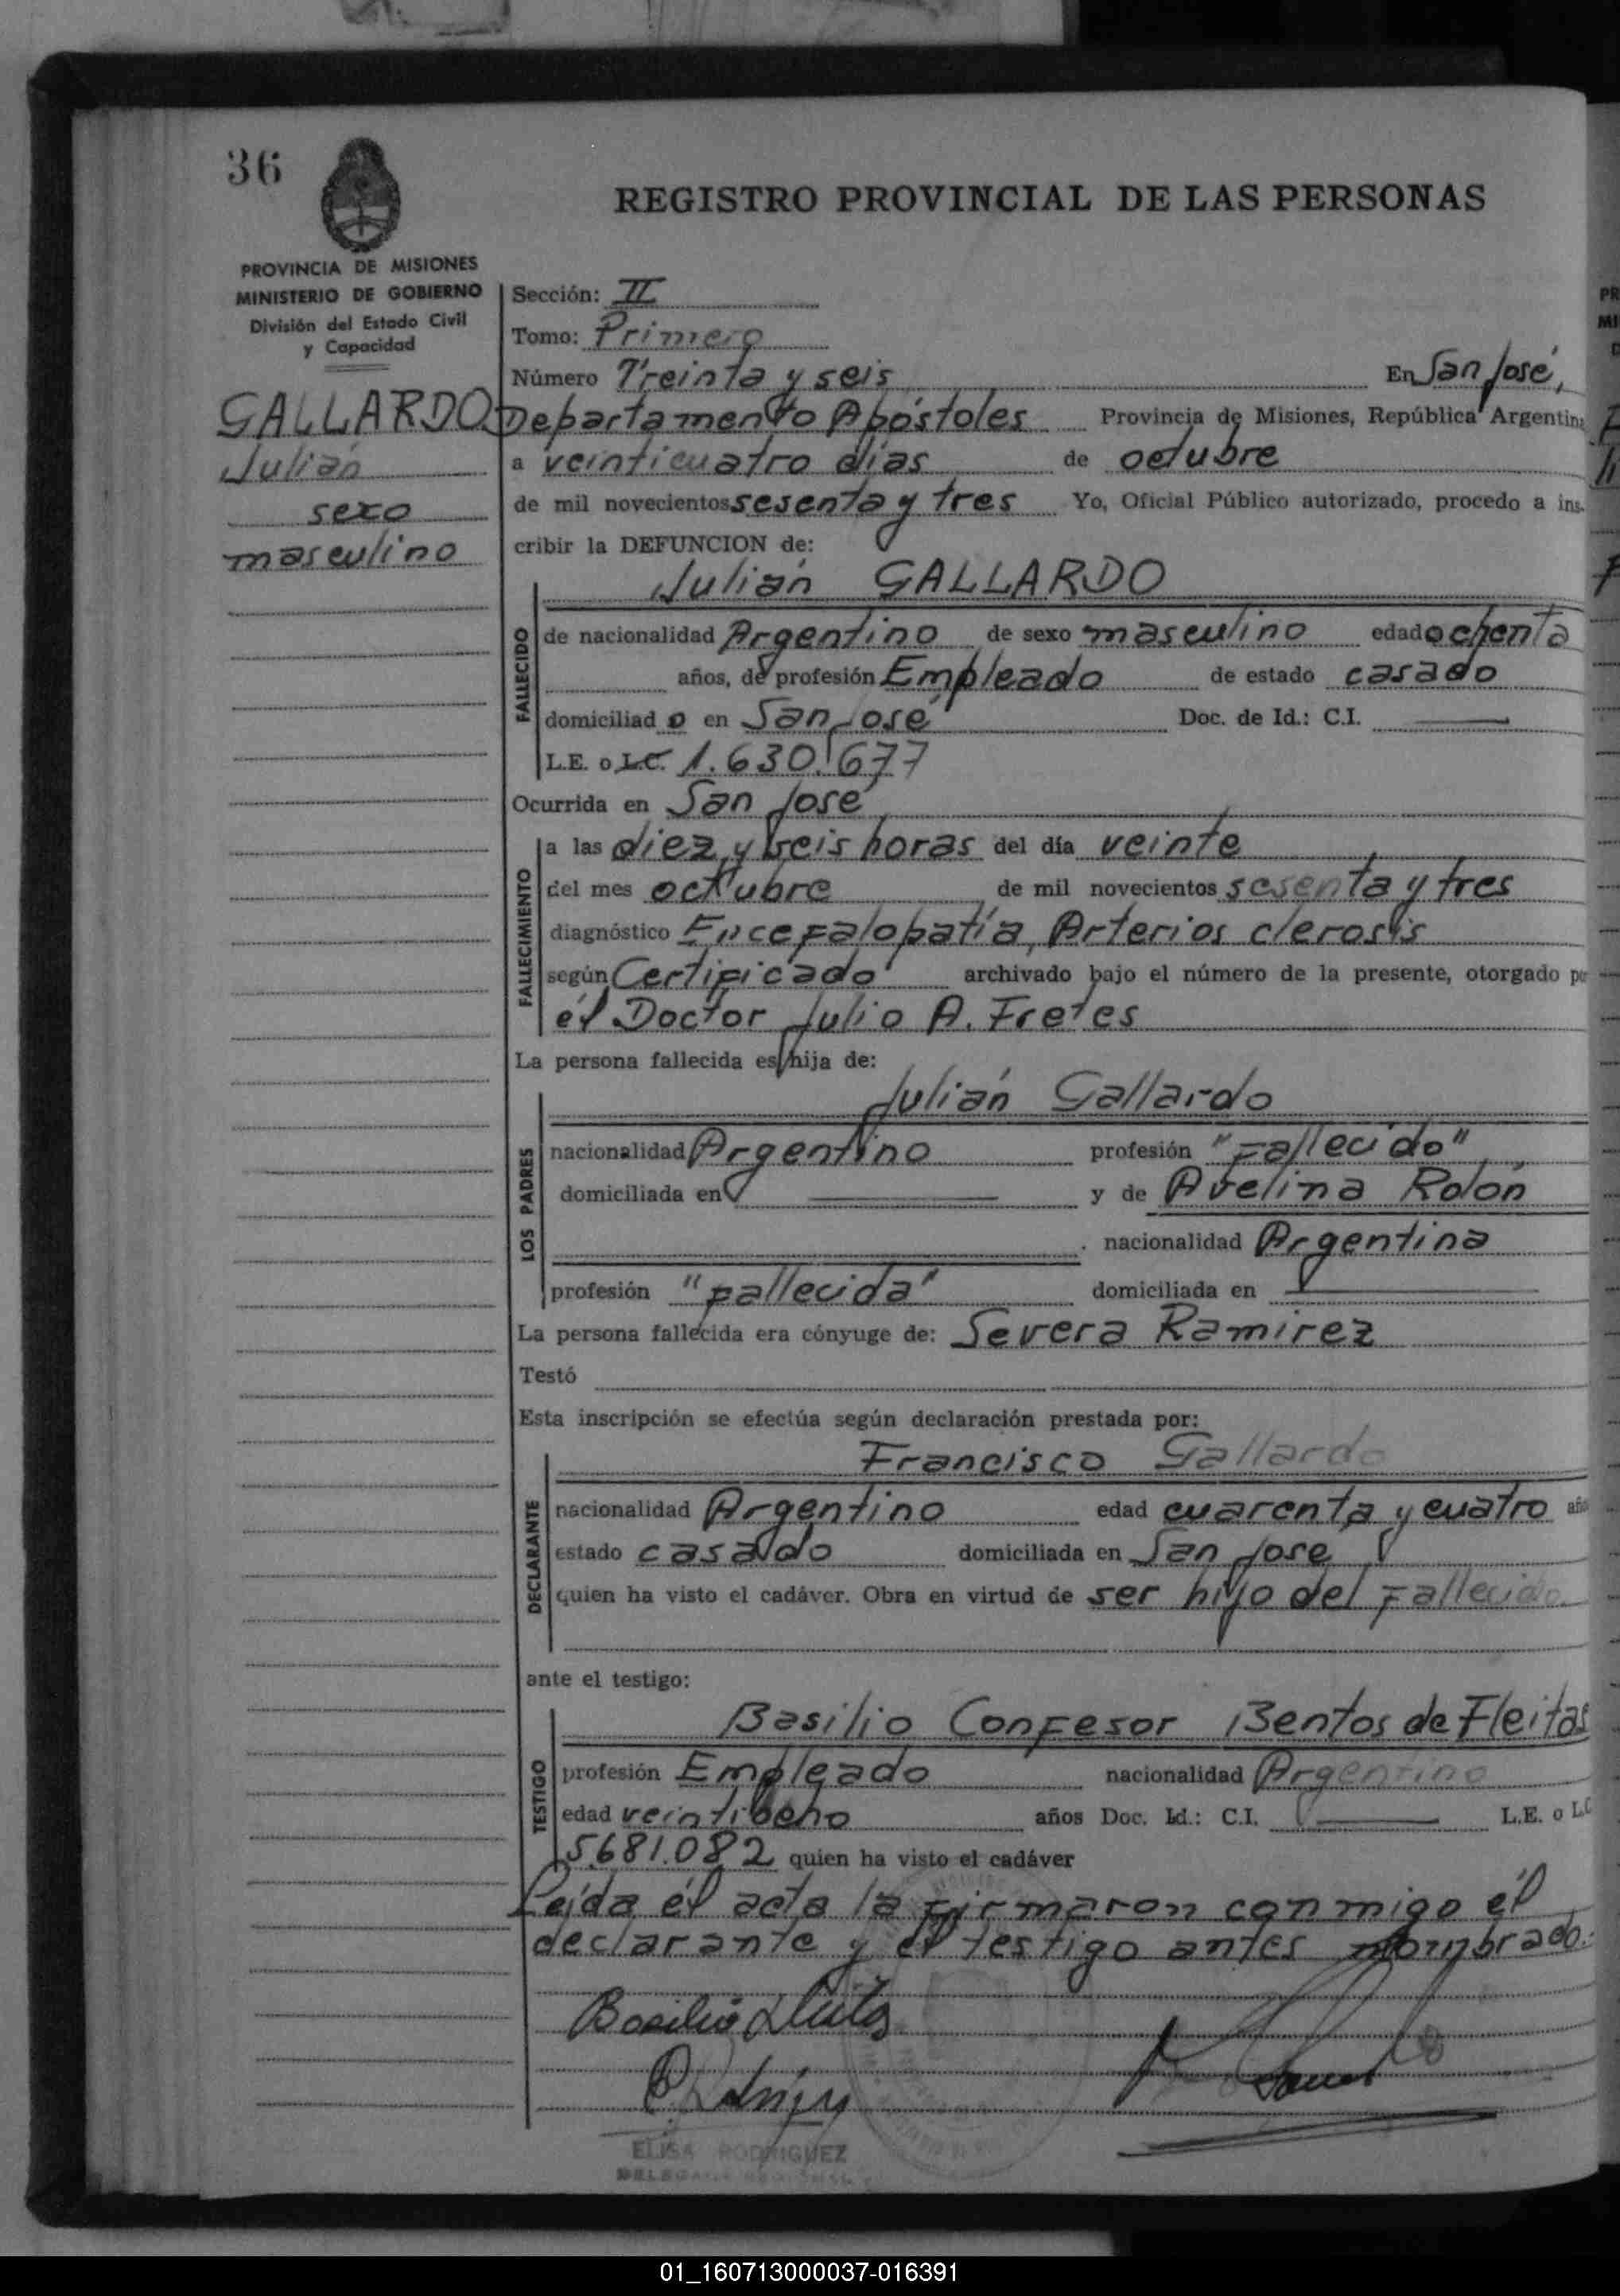 36
REGISTRO PROVINCIAL DE LAS PERSONAS
PROVINCIA DE MISIONES
MINISTERIO DE GOBIERNO
División del Estado Civil
y Capacidad
GALLARDO
Julián
sexo
masculino
Sección: II
Tomo: Primero
Número Treinta y seis En San José,
Departamento Apóstoles Provincia de Misiones, República Argentina
a veinticuatro días de octubre
de mil novecientos sesenta y tres Yo, Oficial Público autorizado, procedo a ins-
cribir la DEFUNCION de:
Julián GALLARDO
FALLECIDO
de nacionalidad Argentino de sexo masculino edad ochenta
años, de profesión Empleado de estado casado
domiciliado en San José Doc. de Id.: C.I.
L.E. o L.C. 1.630.677
Ocurrida en San José
FALLECIMIENTO
a las diez y seis horas del día veinte
del mes octubre de mil novecientos sesenta y tres
diagnóstico Encefalopatía, Arterios clerosis
según Certificado archivado bajo el número de la presente, otorgado po
él Doctor Julio A. Fretes
La persona fallecida es hija de:
Julián Gallardo
LOS PADRES
nacionalidad Argentino profesión "Fallecido"
domiciliada en y de Avelina Rolón
nacionalidad Argentina
profesión "fallecida" domiciliada en
La persona fallecida era cónyuge de: Severa Ramirez
Testó
Esta inscripción se efectúa según declaración prestada por:
Francisco Gallardo
DECLARANTE
nacionalidad Argentino edad cuarenta y cuatro año
estado casado domiciliada en San Jose
quien ha visto el cadáver. Obra en virtud de ser hijo del fallecido.
ante el testigo:
Basilio Confesor Bentos de Fleitas
TESTIGO
profesión Empleado nacionalidad Argentino
edad veintiocho años Doc. Id.: C.I. L.E. o L.C
5.681.082 quien ha visto el cadáver
Leida él acta la firmaron conmigo él
declarante y el testigo antes nombrado.
Basilio Fleitas
ELISA RODRIGUEZ
01_160713000037-016391